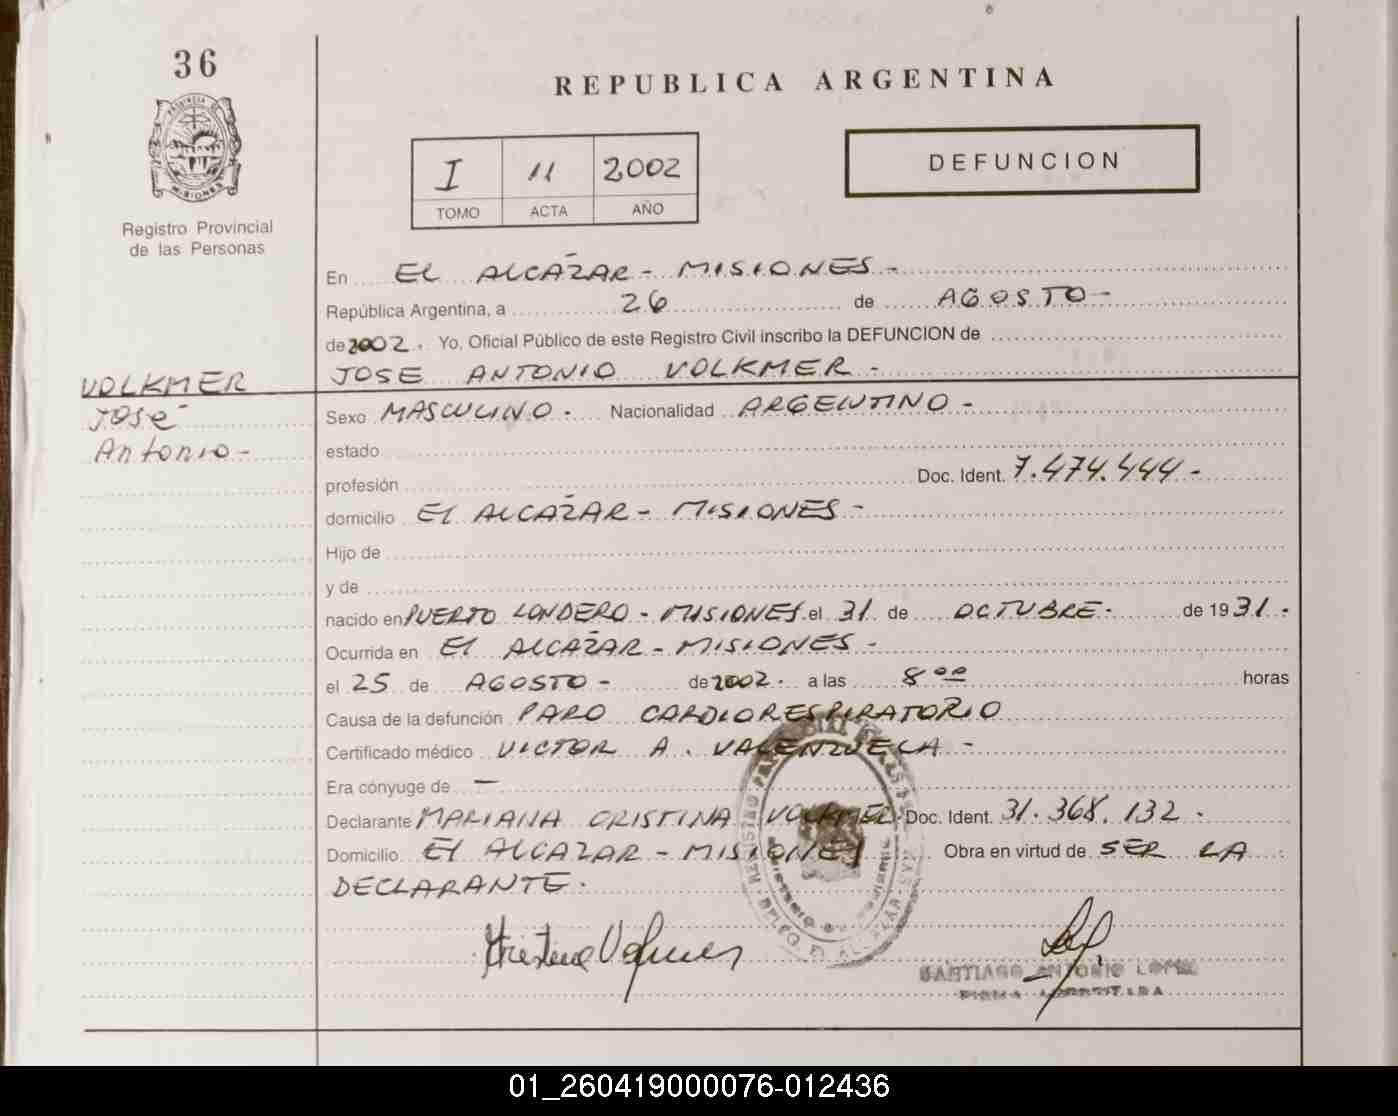 36
REPUBLICA ARGENTINA
PROVINCIA DE
MISIONES
Registro Provincial
de las Personas
I 11 2002
TOMO ACTA AÑO
DEFUNCION
En EL ALCAZAR - MISIONES -
República Argentina, a 26 de AGOSTO -
de 2002. Yo, Oficial Público de este Registro Civil inscribo la DEFUNCION de
JOSE ANTONIO VOLKMER -
VOLKMER
José
Antonio -
Sexo MASCULINO. Nacionalidad ARGENTINO -
estado
profesión Doc. Ident. 7.474.444 -
domicilio El ALCAZAR - MISIONES -
Hijo de
y de
nacido en PUERTO LONDERO - MISIONES el 31 de OCTUBRE - de 1931 -
Ocurrida en El ALCAZAR - MISIONES -
el 25 de AGOSTO - de 2002. a las 8 00 horas
Causa de la defunción PARO CARDIORESPIRATORIO
Certificado médico VICTOR A. VALENZUELA -
Era cónyuge de -
Declarante MARIANA CRISTINA VOLKMER Doc. Ident. 31.368.132 -
Domicilio El ALCAZAR - MISIONES Obra en virtud de SER LA
DECLARANTE.
SANTIAGO ANTONIO
01_260419000076-012436